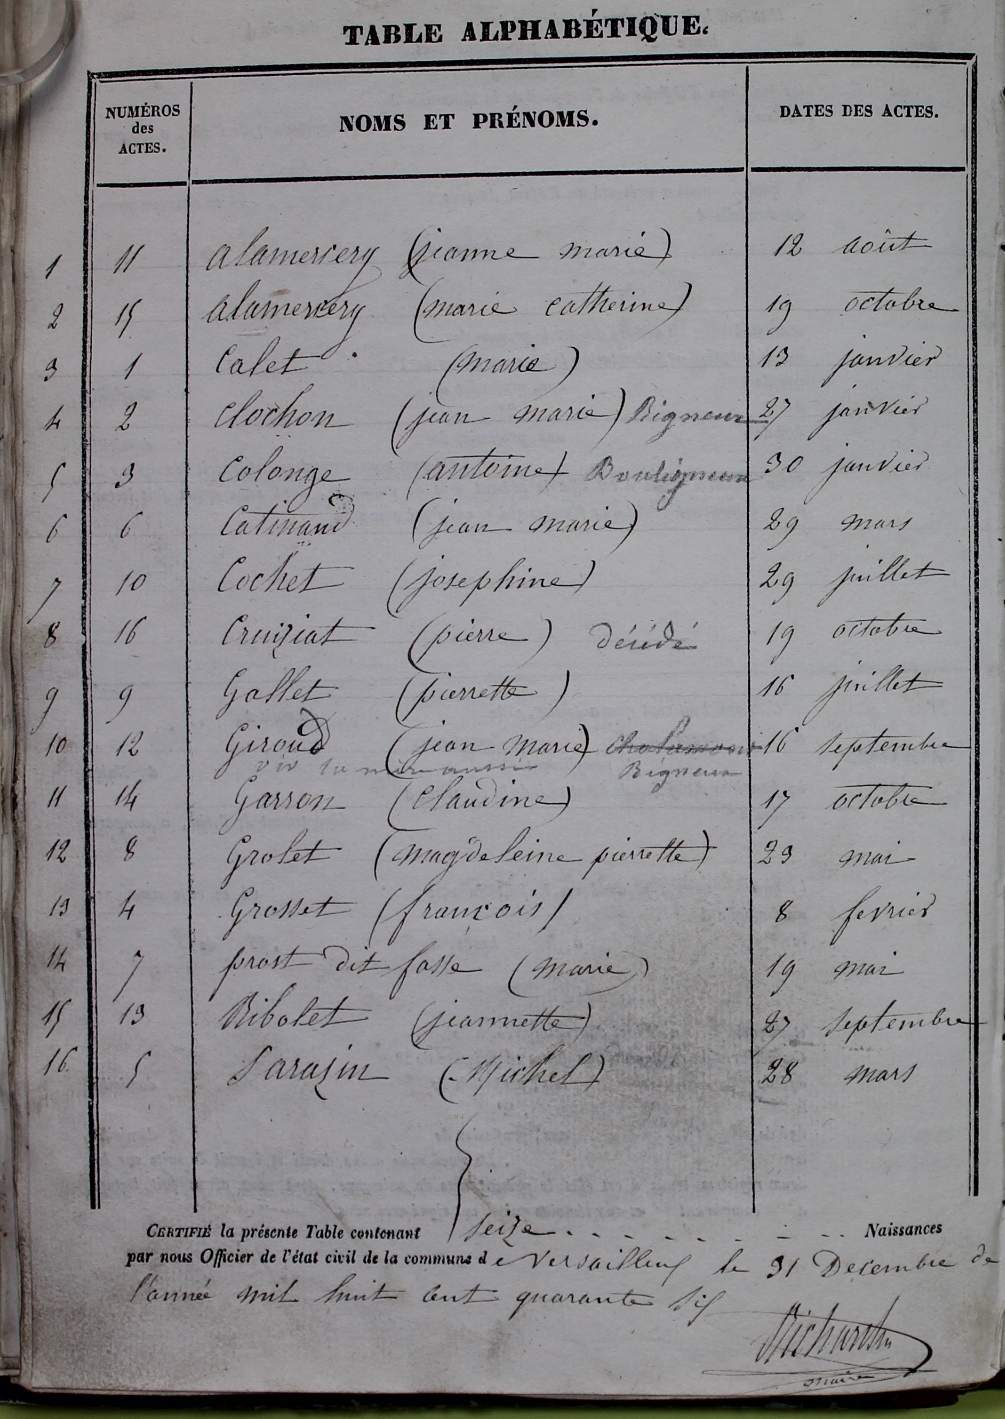 TABLE ALPHABÉTIQUE.
NUMÉROS des ACTES. NOMS ET PRÉNOMS. DATES DES ACTES.
1 11 alamercery (jeanne marie) 12 août
2 15 alamercery (marie catherine) 19 octobre
3 1 Calet (marie) 13 janvier
4 2 Clochon (jean marie) Bigneux 27 janvier
5 3 Colonge (antoine) Bouligneux 30 janvier
6 6 Catinand (jean marie) 29 mars
7 10 Cochet (josephine) 29 juillet
8 16 Cruiziat (pierre) décédé 19 octobre
9 9 Gallet (pierrette) 16 juillet
10 12 Giroud (jean marie) chalamont 16 septembre
Bigneux
11 14 Garron (Claudine) 17 octobre
12 8 Grolet (magdeleine pierrette) 23 mai
13 4 Grosset (françois) 8 fevrier
14 7 prost dit fasse (marie) 19 mai
15 13 Ribolet (jeannette) 27 septembre
16 5 Sarazin (Michel) 28 mars
CERTIFIÉ la présente Table contenant seize Naissances
par nous Officier de l'état civil de la commune de Versailleux le 31 Decembre de
l'année mil huit cent quarante six
Richard
maire